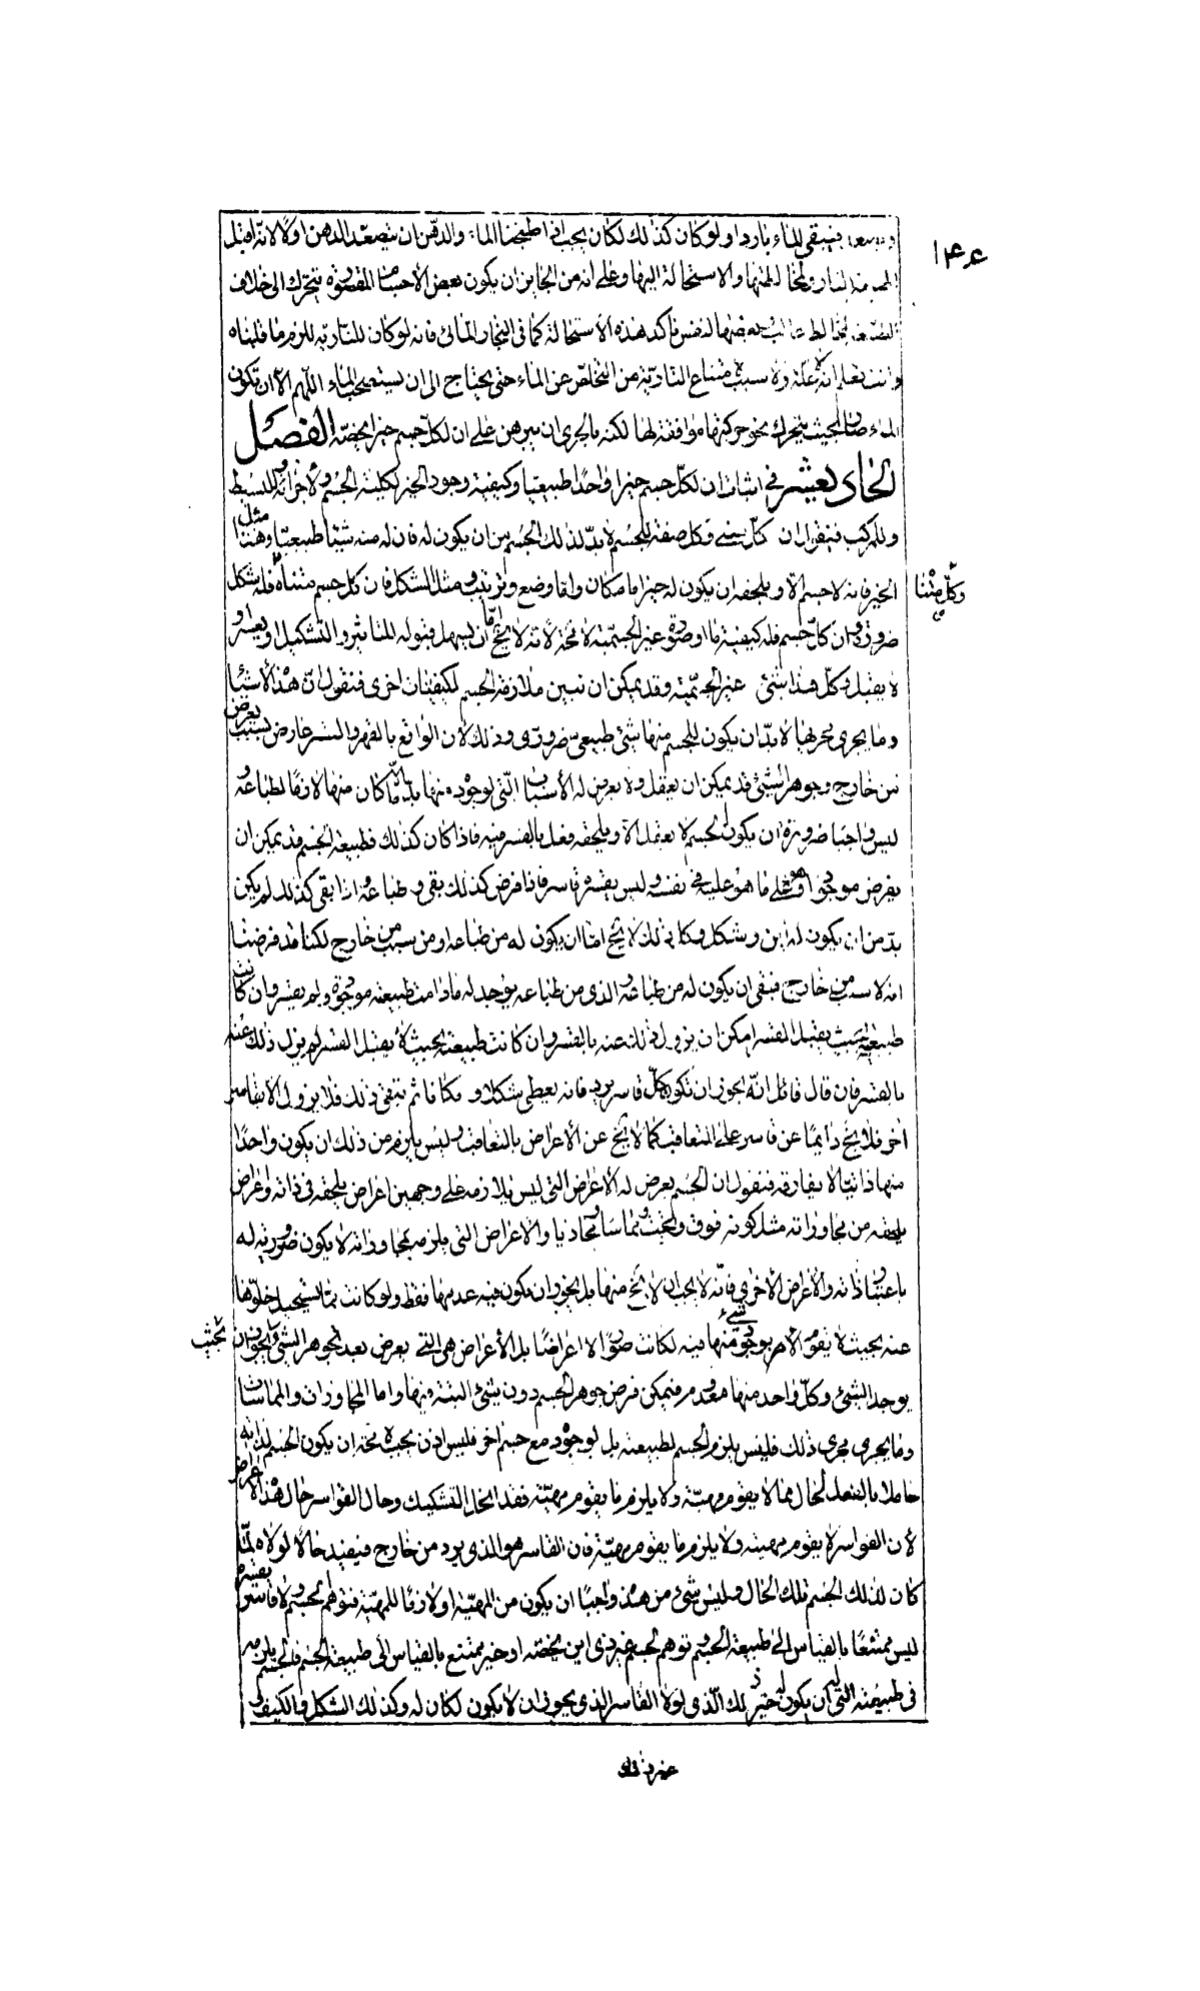 فيبقى الماء باردا ولو كان كذلك لكان يجب اذا طبخنا الماء والدهن ان يتصعد الدهن اولا لانه اقبل
١٤٤
النارية لمخالطتها والاستحالة اليها وعلى انه من الجايز ان يكون بعض الاجسام المقسورة يتحرك الى خلاف
لمخالط بعضها لنفس تاكد هذه الاستحالة كما فى البخار المائى فانه لو كان للنارية للزم ما قلناه
وانت تعلم انه لا علة ولا سبب لامتناع النارية من التخلص عن الماء حتى يحتاج الى ان يستصحب الماء اللهم الا ان تكون
الماء صار بحيث يتحرك نحو حركتها موافقة لها لكنه بالحرى ان نبرهن على ان لكل جسم حيزا يخصه الفصل
الحادى عشر فى اثبات ان لكل جسم حيزا واحدا طبيعيا وكيفية وجود الحيز لكلية الجسم ولاجزائه وللبسيط
وللمركب فنقول ان كل شىء وكل صفة للجسم لا بد لذلك الجسم من ان يكون له فان له منه شيئا طبيعيا وهذا مثل
الحيز فانه لا جسم الا ويلحقه ان يكون له حيز اما مكان واما وضع وترتيب ومثل الشكل فان كل جسم متناه فله شكل
ضرورة وان كل جسم فله كيفية ما او صورة غير الجسمية لا محة لانه لا يخ اما ان يسهل قبوله للتاثير والتشكيل او يعسر او
لا يقبل وكل هذا شىء غير الجسمية وقد يمكن ان نبين ملازمة الجسم لكيفيات اخرى فنقول ان هذه الاشياء
وما يجرى مجريها لا بد ان يكون للجسم منها شىء طبيعى ضرورى وذلك لان الواقع بالقهر والقسر عارض بسبب يعرض
من خارج وجوهر الشىء قد يمكن ان يعقل ولا يعرض له الاسباب التى لوجوده منها بد الا ما كان منها لازما لطباعه و
ليس واجبا ضرورة ان يكون الجسم لا يعقل الا ويلحقه فعل بالقسر فيه فاذا كان كذلك فطبيعة الجسم قد يمكن ان
يفرض موجودا وهو على ما هو عليه فى نفسه وليس يقسره قاسر فاذا فرض كذلك بقى وطباعه واذا بقى كذلك لم يكن
بد من ان يكون له اين وشكل وكل ذلك لا يخ اما ان يكون له من طباعه او من سبب من خارج لكنا قد فرضنا
انه لا سبب من خارج فبقى ان يكون له من طباعه والذى من طباعه يوجد له ما دامت طبيعته موجودة ولم يقسر وان كانت
طبيعته بحيث يقبل القسر امكن ان يزول ذلك عنه بالقسر وان كانت طبيعته بحيث لا يقبل القسر لم يزل ذلك عنه
بالقسر فان قال قائل انه يجوز ان تكون كل قاسر يرد فانه يعطى شكلا و مكانا ثم يبقى ذلك فلا يزول الا بقاسر
اخر فلا يخ دايما عن قاسر على التعاقب كما لا يخ عن الاعراض بالتعاقب وليس يلزم من ذلك ان يكون واحدا
منها ذاتيا لا يفارقه فنقول ان الجسم يعرض له الاعراض التى ليس بلازمة على وجهين اعراض يلحقه فى ذاته واعراض
يلحقه من مجاوراته مثل كونه فوق وتحت ومماسا ومحاذيا والاعراض التى يلزمه بمجاوراته لا يكون ضرورية له
باعتبار ذاته والاعراض الاخرى فانه لا يجب ان لا يخ منها بل يجوز ان تكون فيه عدمها فقط ولو كانت مما يستحيل خلوها
عنه بحيث لا يقوم الامر بوجود شىء منها فيه لكانت صورا لا اعراضا بل الاعراض هى التى يعرض بعد تجوهر الشىء ويجوز ان
يوجد الشىء وكل واحد منها معدوم فيمكن فرض جوهر الجسم دون شىء البتة منها واما المجاورات والمماسات
وما يجرى مجرى ذلك فليس يلزم الجسم لطبيعته بل لوجوده مع جسم اخر فليس اذن يجب لا محة ان يكون الجسم لذاته
حاملا بالفعل لحال مما لا يقوم مهيته ولا يلزم ما يقوم مهيته فقد انحل التشكيك وحال القواسر حال هذه الاعراض
لان القواسر لا يقوم مهيته ولا يلزم ما يقوم مهيته فان القاسر هو الذى يرد من خارج فيفيد حالا لولاه لما
كان لذلك الجسم تلك الحال وليس شىء من هذا واجبا ان يكون من المهية او لازما للمهية فتوهم الجسم ولا قاسر يقسره
ليس ممتنعا بالقياس الى طبيعة الجسم وتوهم الجسم غير ذى اين يخصه او حيز ممتنع بالقياس الى طبيعة الجسم فالجسم يلزمه
فى طبيعته التى له ان يكون له حيز ذلك الذى لولا القاسر الذى يجوز ان لا يكون لكان له وكذلك الشكل والكيف و